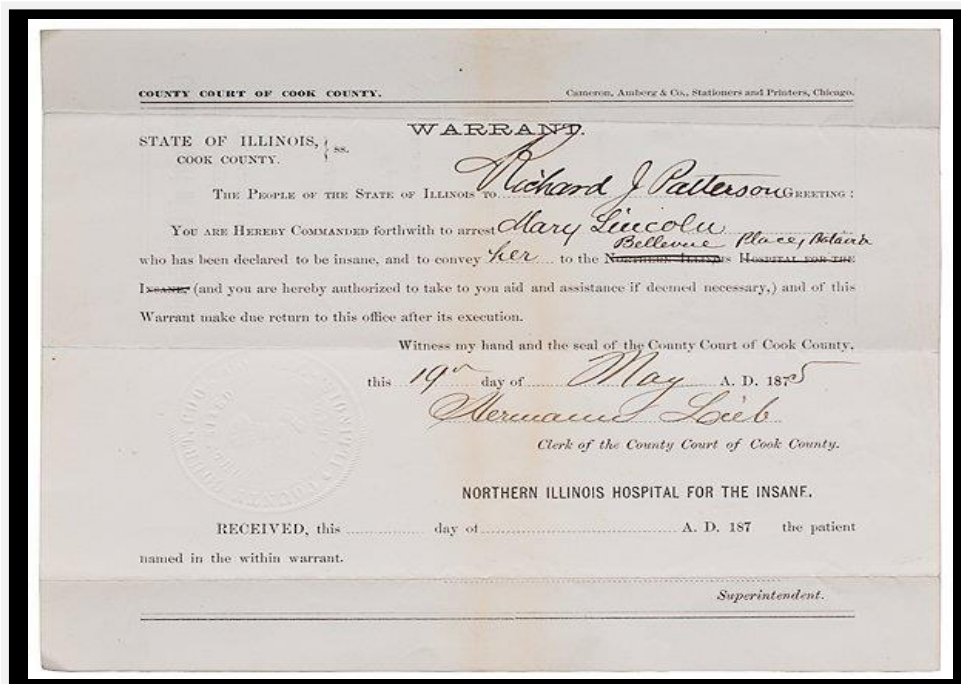 COUNTY COURT OF COOK COUNTY. Cameron, Amberg & Co., Stationers and Printers, Chicago.
WARRANT.
STATE OF ILLINOIS, } ss.
COOK COUNTY.
THE PEOPLE OF THE STATE OF ILLINOIS TO Richard J Patterson GREETING:
YOU ARE HEREBY COMMANDED forthwith to arrest Mary Lincoln
Bellevue Place, Batavia
who has been declared to be insane, and to convey her to the NORTHERN ILLINOIS HOSPITAL FOR THE
INSANE, (and you are hereby authorized to take to you aid and assistance if deemed necessary,) and of this
Warrant make due return to this office after its execution.
Witness my hand and the seal of the County Court of Cook County,
this 19th day of May A. D. 1875
Hermann Lieb
Clerk of the County Court of Cook County.
NORTHERN ILLINOIS HOSPITAL FOR THE INSANE.
RECEIVED, this day of A. D. 187 the patient
named in the within warrant.
Superintendent.